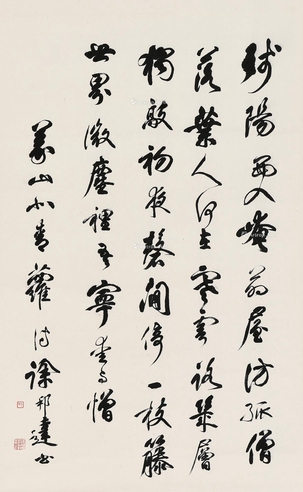 殘陽西入崦茅屋訪孤僧
落葉人何在寒雲路幾層
獨敲初夜磬閒倚一枝籐
世界微塵裡吾寧愛与憎
義山北青蘿詩徐邦達書